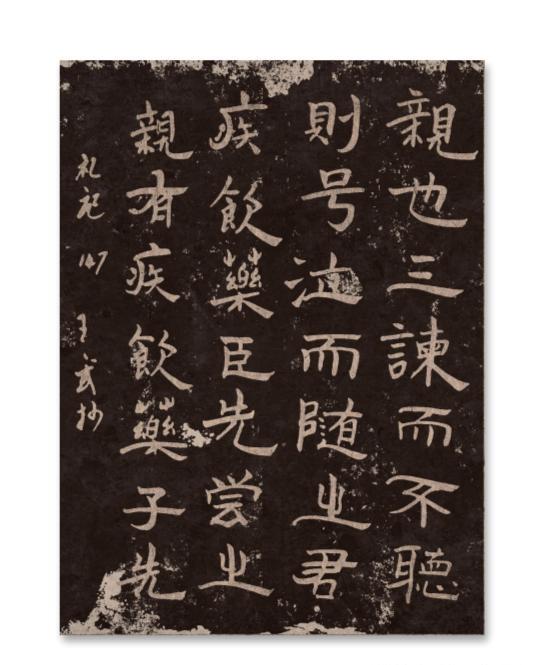 親也三諫而不聽
則号泣而随之君
疾飲藥臣先尝之
親有疾飲藥子先
礼记 147 王武抄